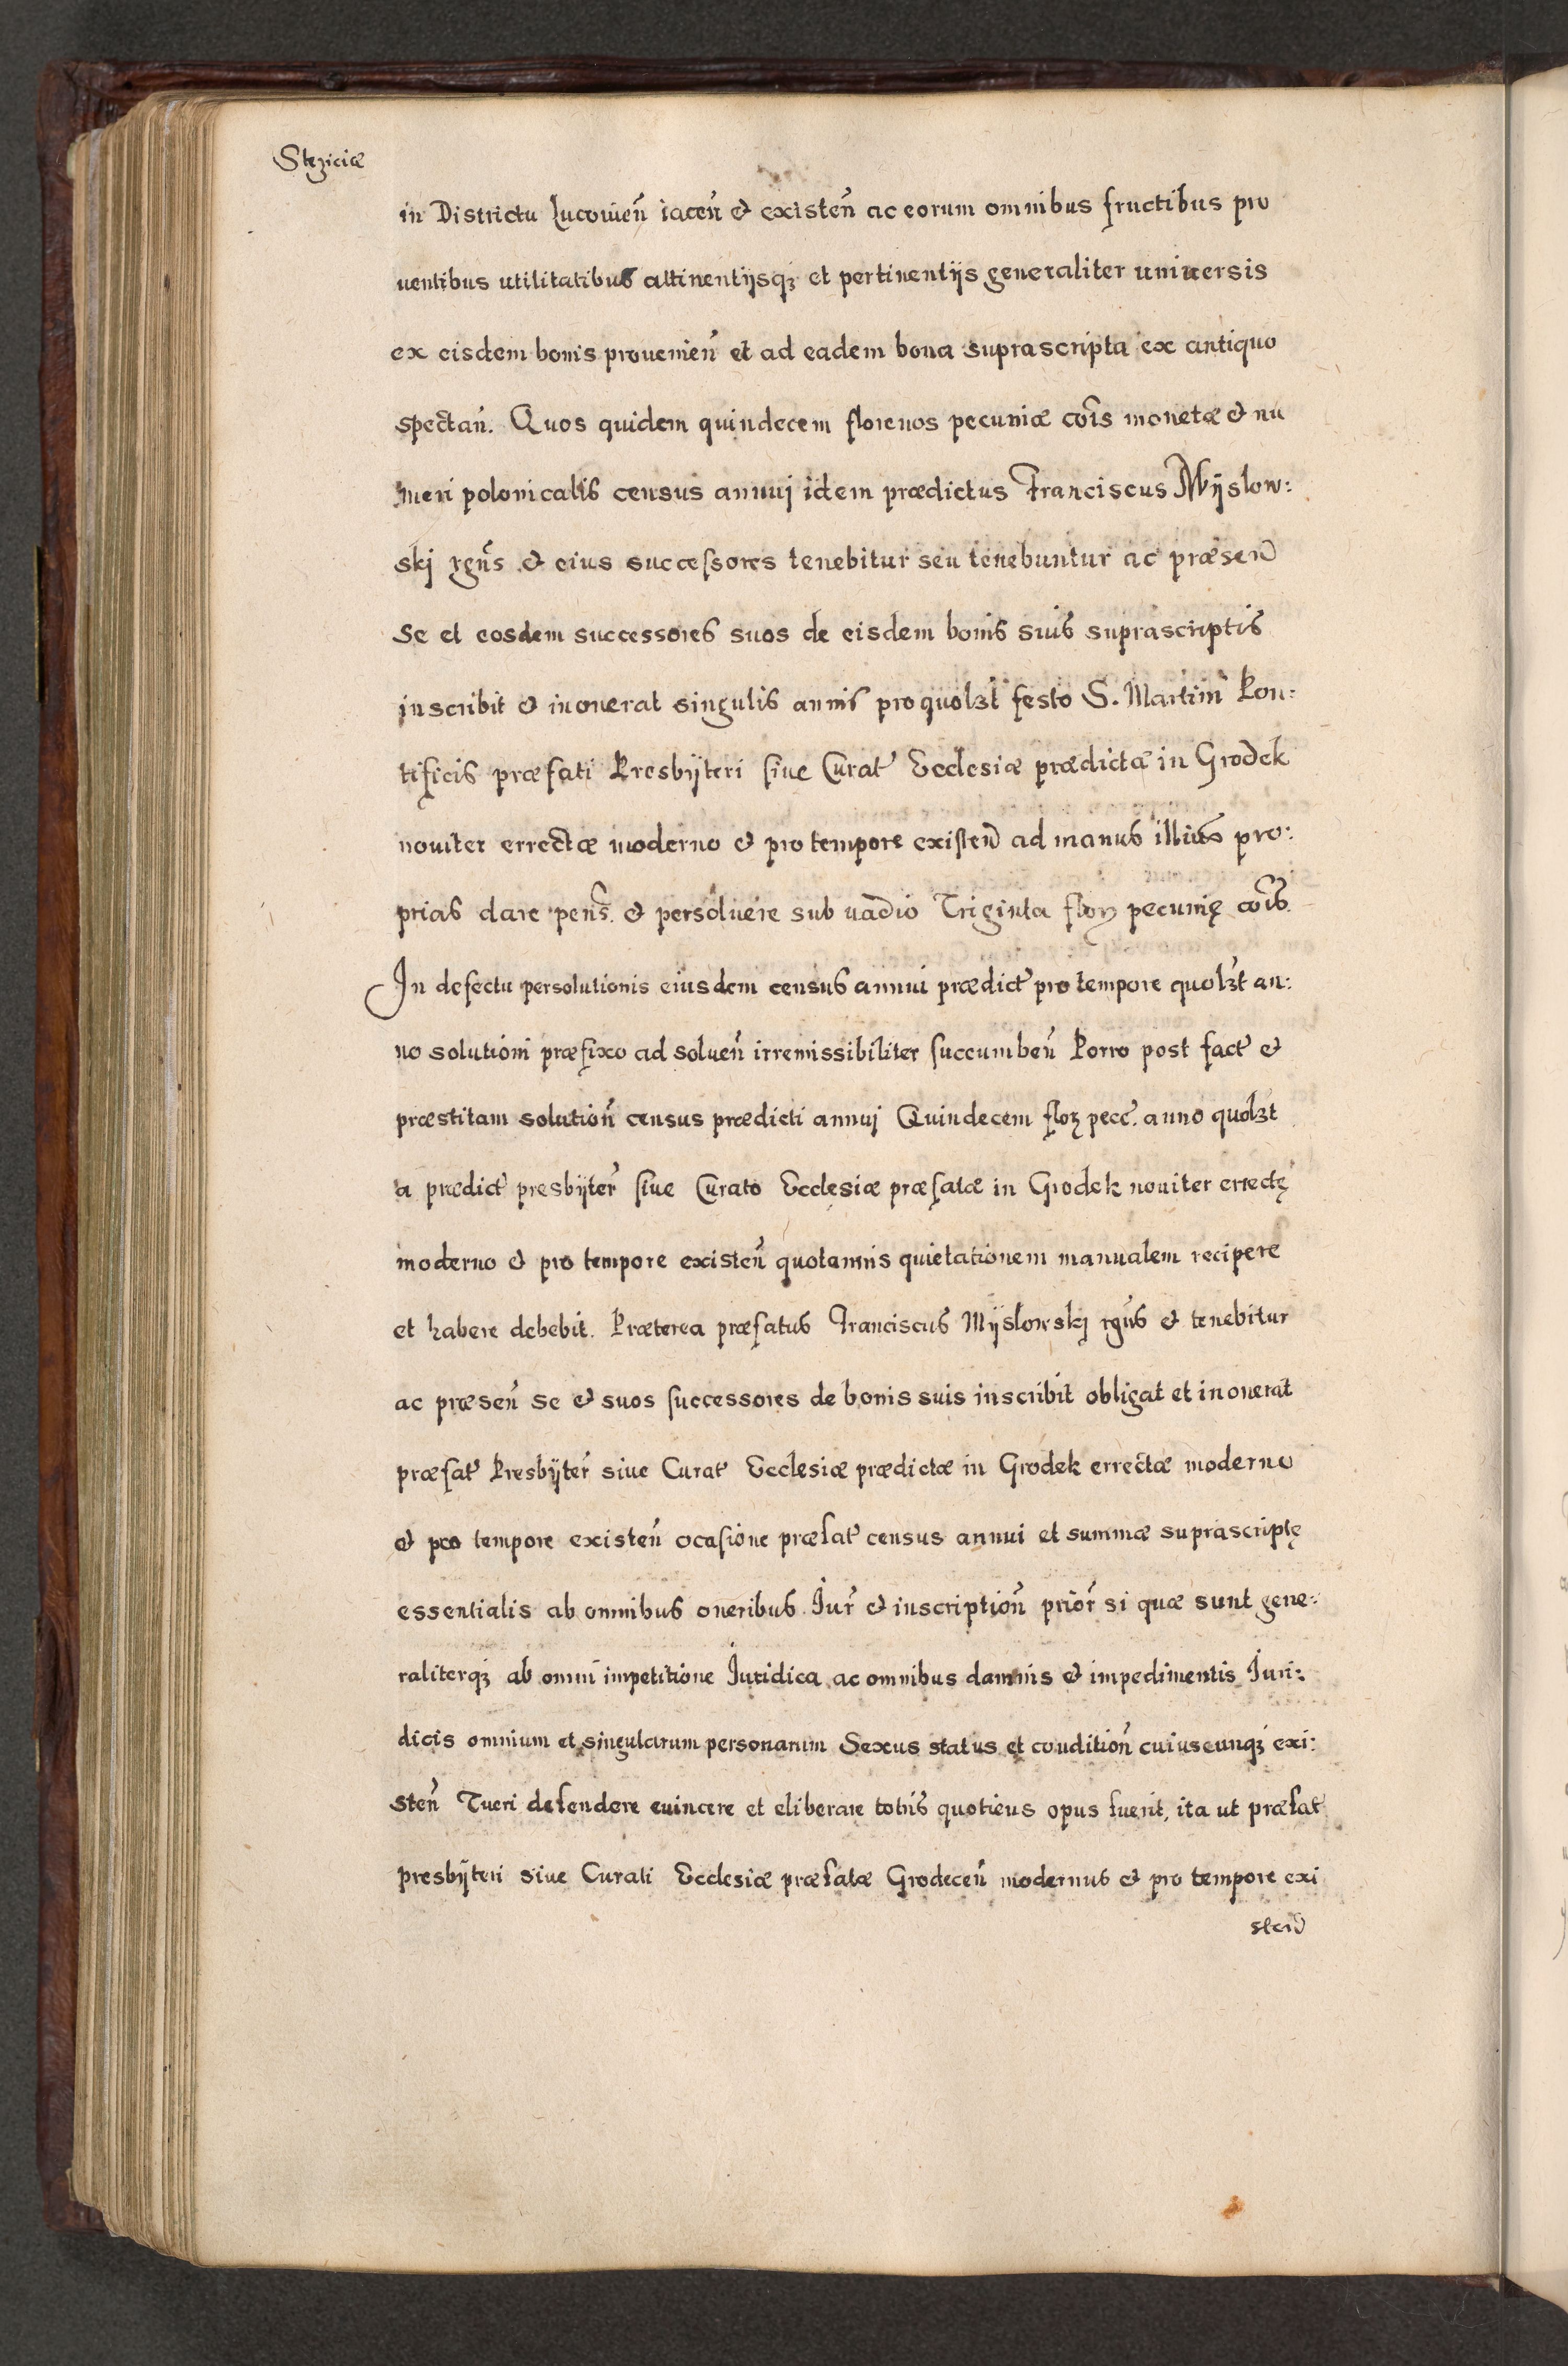 Steziciæ
in Districtu Lucouieñ iaceñ & existeñ ac eorum omnibus fructibus pro
uentibus utilitatibus attinentijsqȝ et pertinentijs generaliter uniuersis
ex eisdem bonis prouenieñ et ad eadem bona suprascripta ex antiquo
spectañ. Quos quidem quindecem florenos pecuniæ cõis monetæ & nu
meri polonicalis census annuj idem prædictus Franciscus Mÿslow:
skj rgñs & eius successores tenebitur seu tenebuntur ac præseñ
se et eosdem successores suos de eisdem bonis suis suprascriptis
inscribit & inonerat singulis annis pro quolȝt festo S. Martini Pon:
tificis præfati Presbÿteri siue Curat̃ Ecclesiæ prædictæ in Grodek
nouiter errectæ moderno & pro tempore existeñ ad manus illius pro:
prias dare peñs. & persoluere sub uadio Triginta florꝫ pecunię cõis.
In defectu persolutionis eiusdem census annui prædict̃ pro tempore quolȝt an:
no solutioni præfixo ad solueñ irremissibiliter succumbeñ Porro post fact̃ &
præstitam solutioñ census prædicti annuj Quindecem florꝫ pecc̃. anno quolȝt
a prædict̃ presbÿter̃ siue Curato Ecclesiæ præfatæ in Grodek nouiter errectę
moderno & pro tempore existeñ quotannis quietationem manualem recipere
et habere debebit. Præterea præfatus Franciscus Mÿslowskj rgñs & tenebitur
ac præseñ se & suos successores de bonis suis inscribit obligat et inonerat
præfat̃ Presbÿter̃ siue Curat̃ Ecclesiæ prædictæ in Grodek errectæ moderno
& pro tempore existeñ ocasione præfat̃ census annui et summæ suprascriptę
essentialis ab omnibus oneribus Iur̃ & inscriptioñ prior̃ si quæ sunt gene:
raliterqȝ ab omni impetitione Iuridica ac omnibus damnis & impedimentis Iuri:
dicis omnium et singularum personarum Sexus status et conditioñ cuiuscunqȝ exi:
steñ Tueri defendere euincere et eliberare toties quotiens opus fuerit, ita ut præfat̃
presbÿteri siue Curati Ecclesiæ præfatæ Grodeceñ modernus & pro tempore exi
steñ